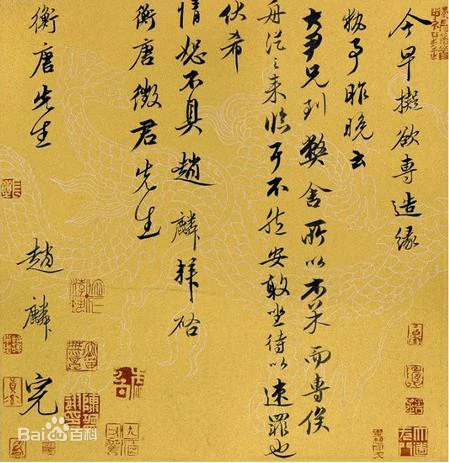 今早擬欲專造緣
執事昨晚云
大尹兄到獘舍所以不果而專俟
舟從之來臨不然安敢坐待以速罪也
伏希
情恕不具趙麟拜啓
衡唐徵君先生
衡唐先生 趙麟 完
Bai 百科